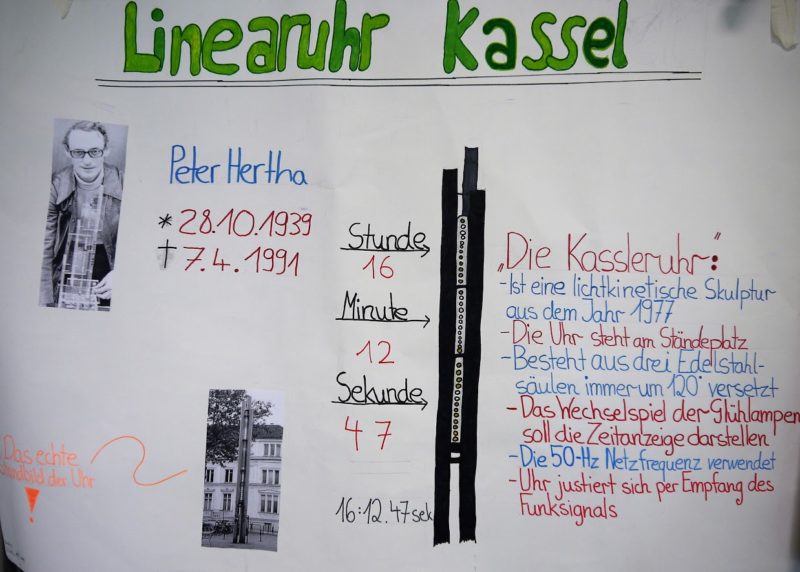 Linearuhr Kassel
Peter Hertha
* 28.10.1939
† 7.4.1991
Stunde
16
Minute
12
Sekunde
47
16:12.47sek
„Die Kassleruhr“:
-Ist eine lichtkinetische Skulptur
aus dem Jahr 1977
-Die Uhr steht am Ständeplatz
-Besteht aus drei Edelstahl-
säulen immer um 120° versetzt
-Das Wechselspiel der Glühlampen
soll die Zeitanzeige darstellen
-Die 50-Hz Netzfrequenz verwendet
-Uhr justiert sich per Empfang des
Funksignals
Das echte
der Uhr
!